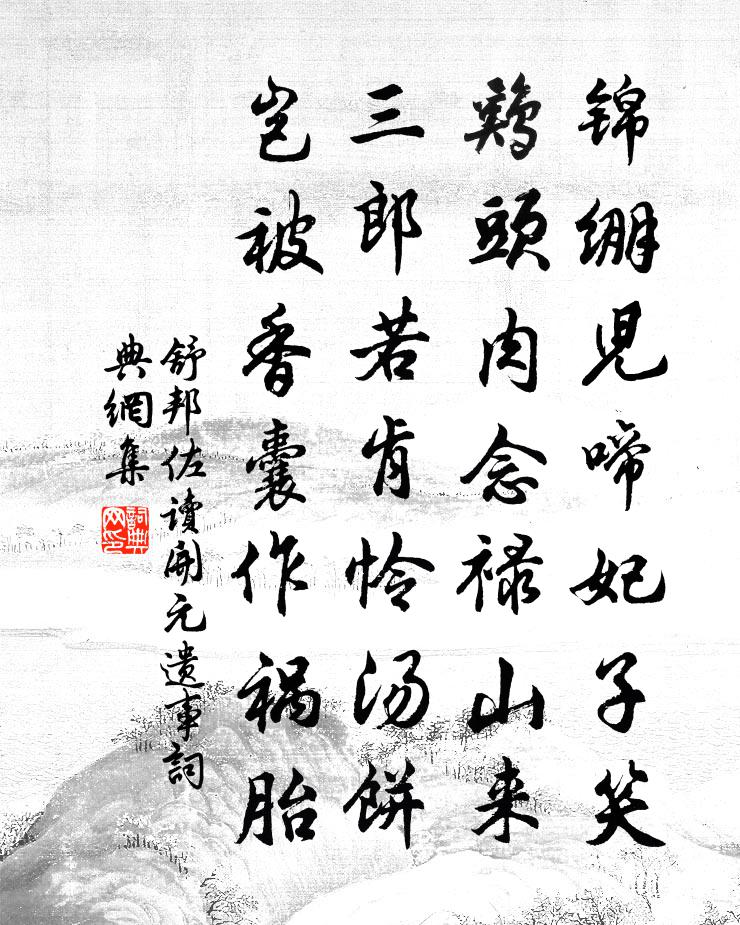 锦绷児啼妃子笑
鷄頭肉念禄山来
三郎若肯怜汤餅
岂被香囊作祸胎
舒邦佐读开元遗事詞
典網集
詞典
网印